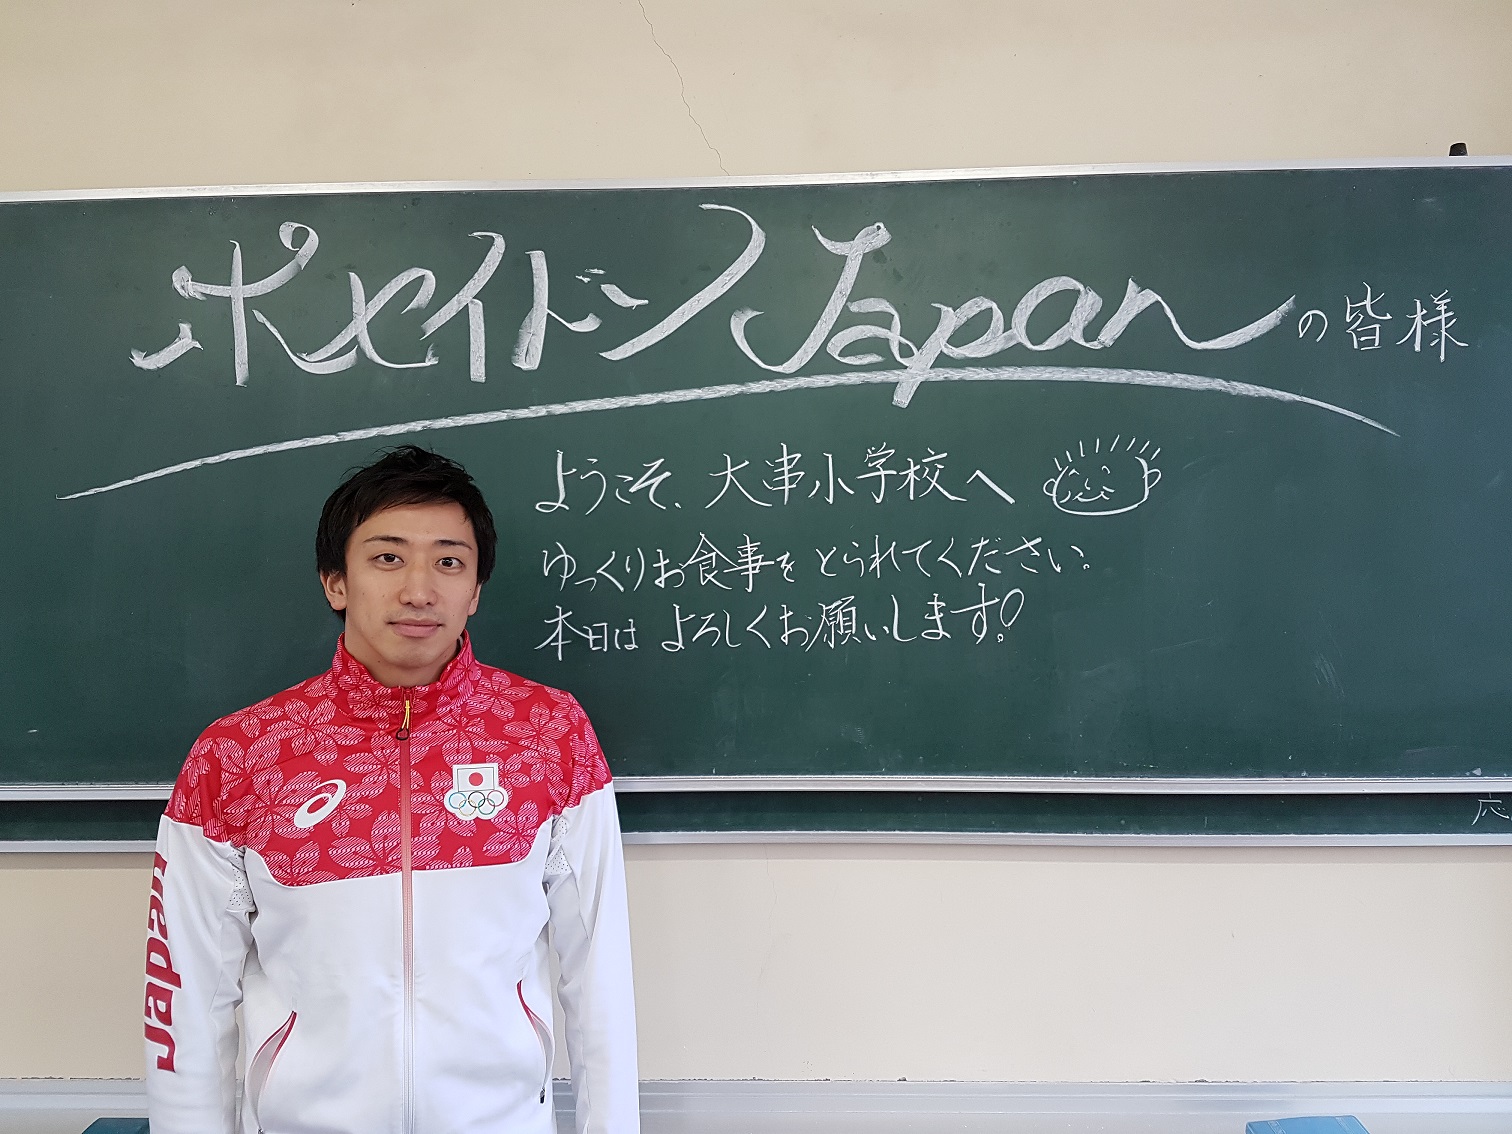 ポセイドンJapanの皆様
ようこそ、大串小学校へ
ゆっくりお食事をとられてください。
本日はよろしくお願いします!
Japan
応